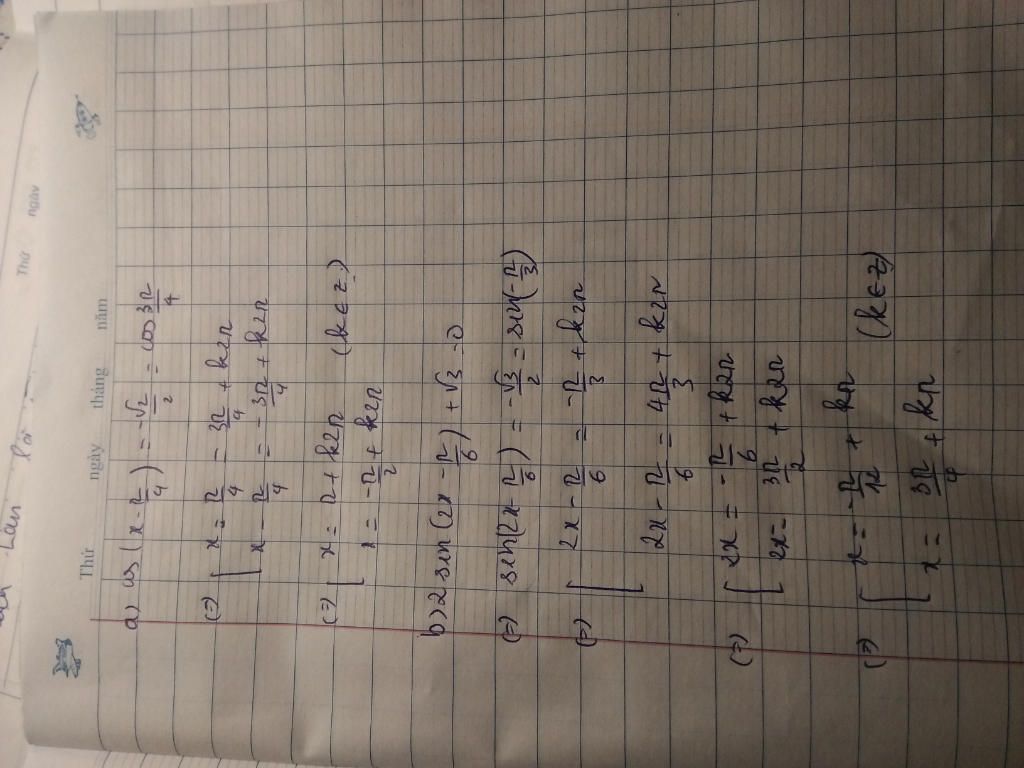 Thứ ngày
Thứ ngày tháng năm
a) cos(x - π/4) = -√2/2 = cos 3π/4
(=) [ x = π/4 = 3π/4 + k2π
x - π/4 = - 3π/4 + k2π
(=) [ x = π + k2π (k ∈ Z)
x = -π/2 + k2π
b) 2 sin (2x - π/6) + √3 = 0
(=) sin(2x - π/6) = -√3/2 = sin(-π/3)
(=) [ 2x - π/6 = -π/3 + k2π
2x - π/6 = 4π/3 + k2π
(=) [ 2x = -π/6 + k2π
2x = 3π/2 + k2π
(=) [ x = -π/12 + kπ (k ∈ Z)
x = 3π/4 + kπ